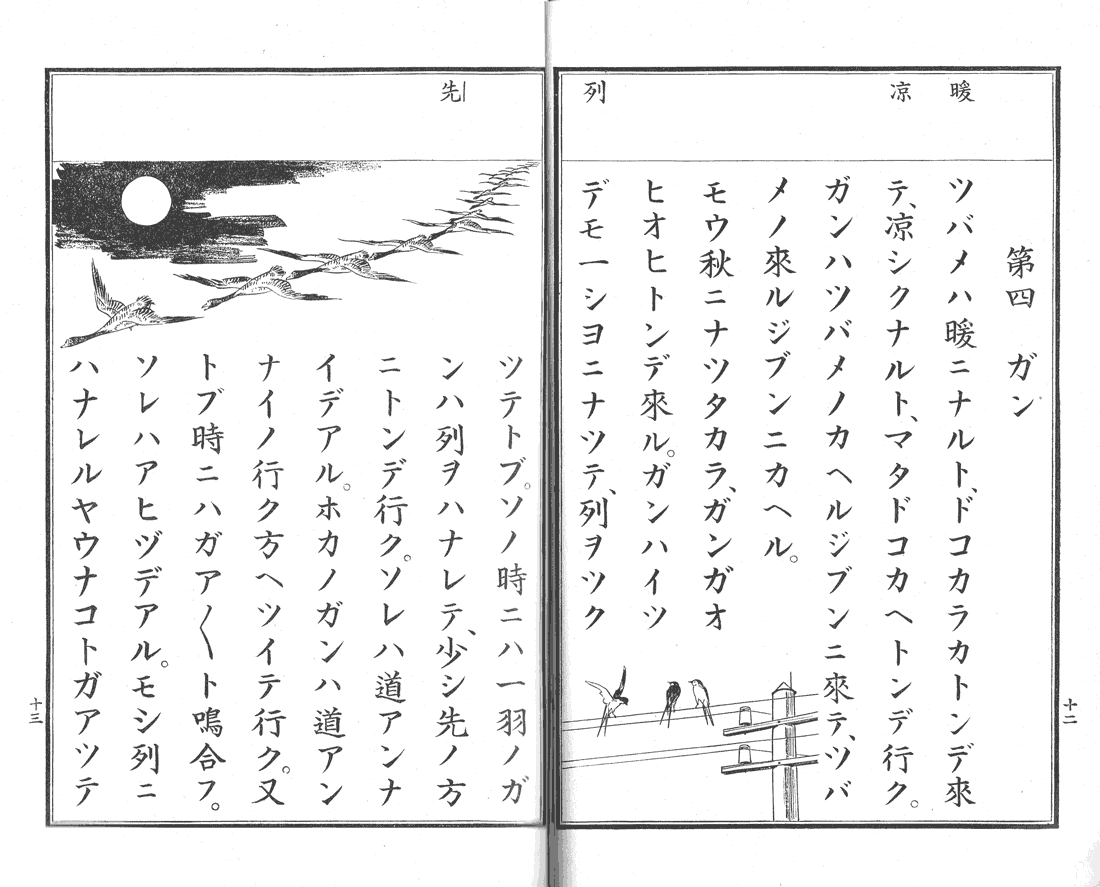 暖
凉
列
第四 ガン
ツバメハ暖ニナルト、ドコカラカトンデ來
テ、凉シクナルト、マタドコカヘトンデ行ク。
ガンハツバメノカヘルジブンニ來テ、ツバ
メノ來ルジブンニカヘル。
モウ秋ニナツタカラ、ガンガオ
ヒオヒトンデ來ル。ガンハイツ
デモ一シヨニナツテ、列ヲツク
十二
先
ツテトブ。ソノ時ニハ一羽ノガ
ンハ列ヲハナレテ、少シ先ノ方
ニトンデ行ク。ソレハ道アンナ
イデアル。ホカノガンハ道アン
ナイノ行ク方ヘツイテ行ク。又
トブ時ニハガア〱ト鳴合フ。
ソレハアヒヅデアル。モシ列ニ
ハナレルヤウナコトガアツテ
十三